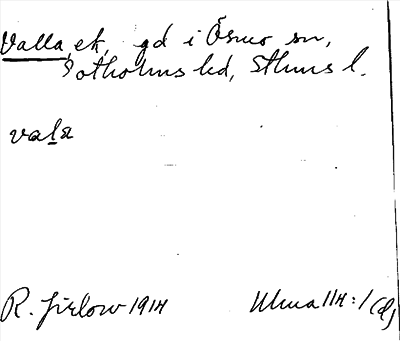 Valla, ek, gd i Ösmo sn,
Sotholms hd, Sthms l.
vala
R. Jirlow 1914
Ulma 114:1 (d)